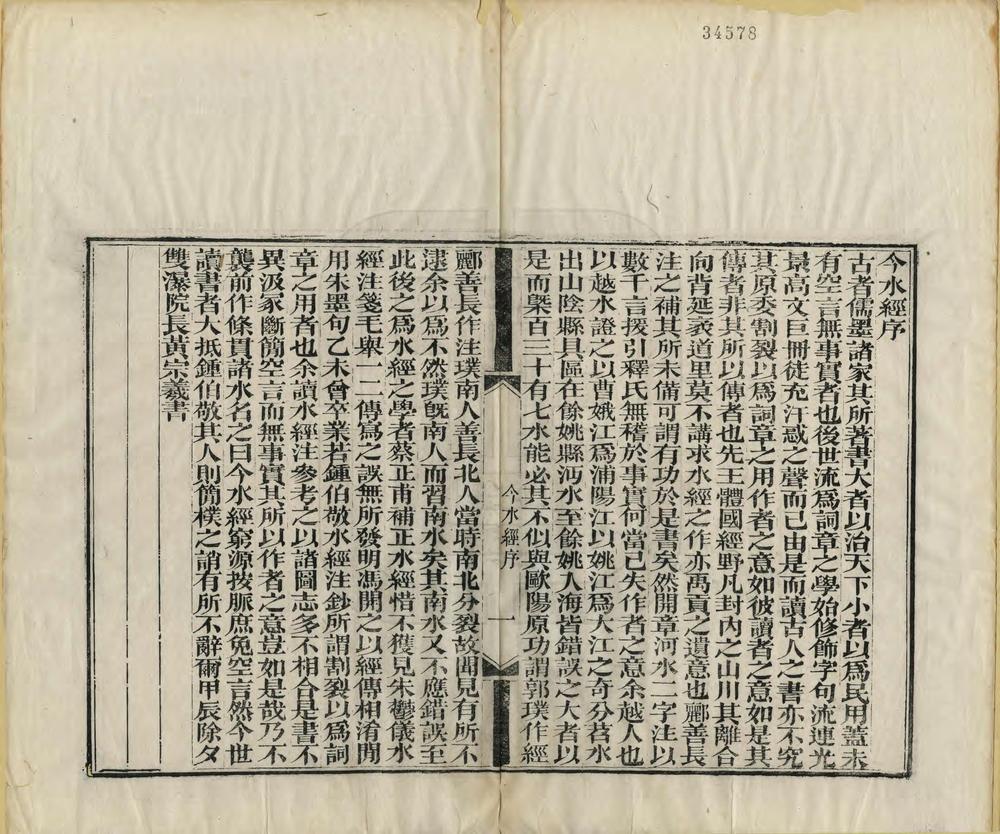 34578
今水經序
古者儒墨諸家其所著書大者以治天下小者以爲民用蓋未
有空言無事實者也後世流爲詞章之學始修飾字句流連光
景高文巨冊徒充汙惑之聲而已由是而讀古人之書亦不究
其原委割裂以爲詞章之用作者之意如彼讀者之意如是其
傳者非其所以傳者也先王體國經野凡封內之山川其離合
向背延袤道里莫不講求水經之作亦禹貢之遺意也酈善長
注之補其所未備可謂有功於是書矣然開章河水二字注以
數千言援引釋氏無稽於事實何當已失作者之意余越人也
以越水證之以曹娥江爲浦陽江以姚江爲大江之奇分苕水
出山陰縣具區在餘姚縣沔水至餘姚入海皆錯誤之大者以
是而槩百三十有七水能必其不似與歐陽原功謂郭璞作經
今水經序
一
酈善長作注璞南人善長北人當時南北分裂故聞見有所不
逮余以爲不然璞旣南人而習南水矣其南水又不應錯誤至
此後之爲水經之學者蔡正甫補正水經惜不獲見朱鬱儀水
經注箋毛舉一二傳寫之誤無所發明馮開之以經傳相淆間
用朱墨句乙未曾卒業若鍾伯敬水經注鈔所謂割裂以爲詞
章之用者也余讀水經注參考之以諸圖志多不相合是書不
異汲冢斷簡空言而無事實其所以作者之意豈如是哉乃不
襲前作條貫諸水名之曰今水經窮源按脈庶免空言然今世
讀書者大抵鍾伯敬其人則簡樸之誚有所不辭爾甲辰除夕
雙瀑院長黃宗羲書